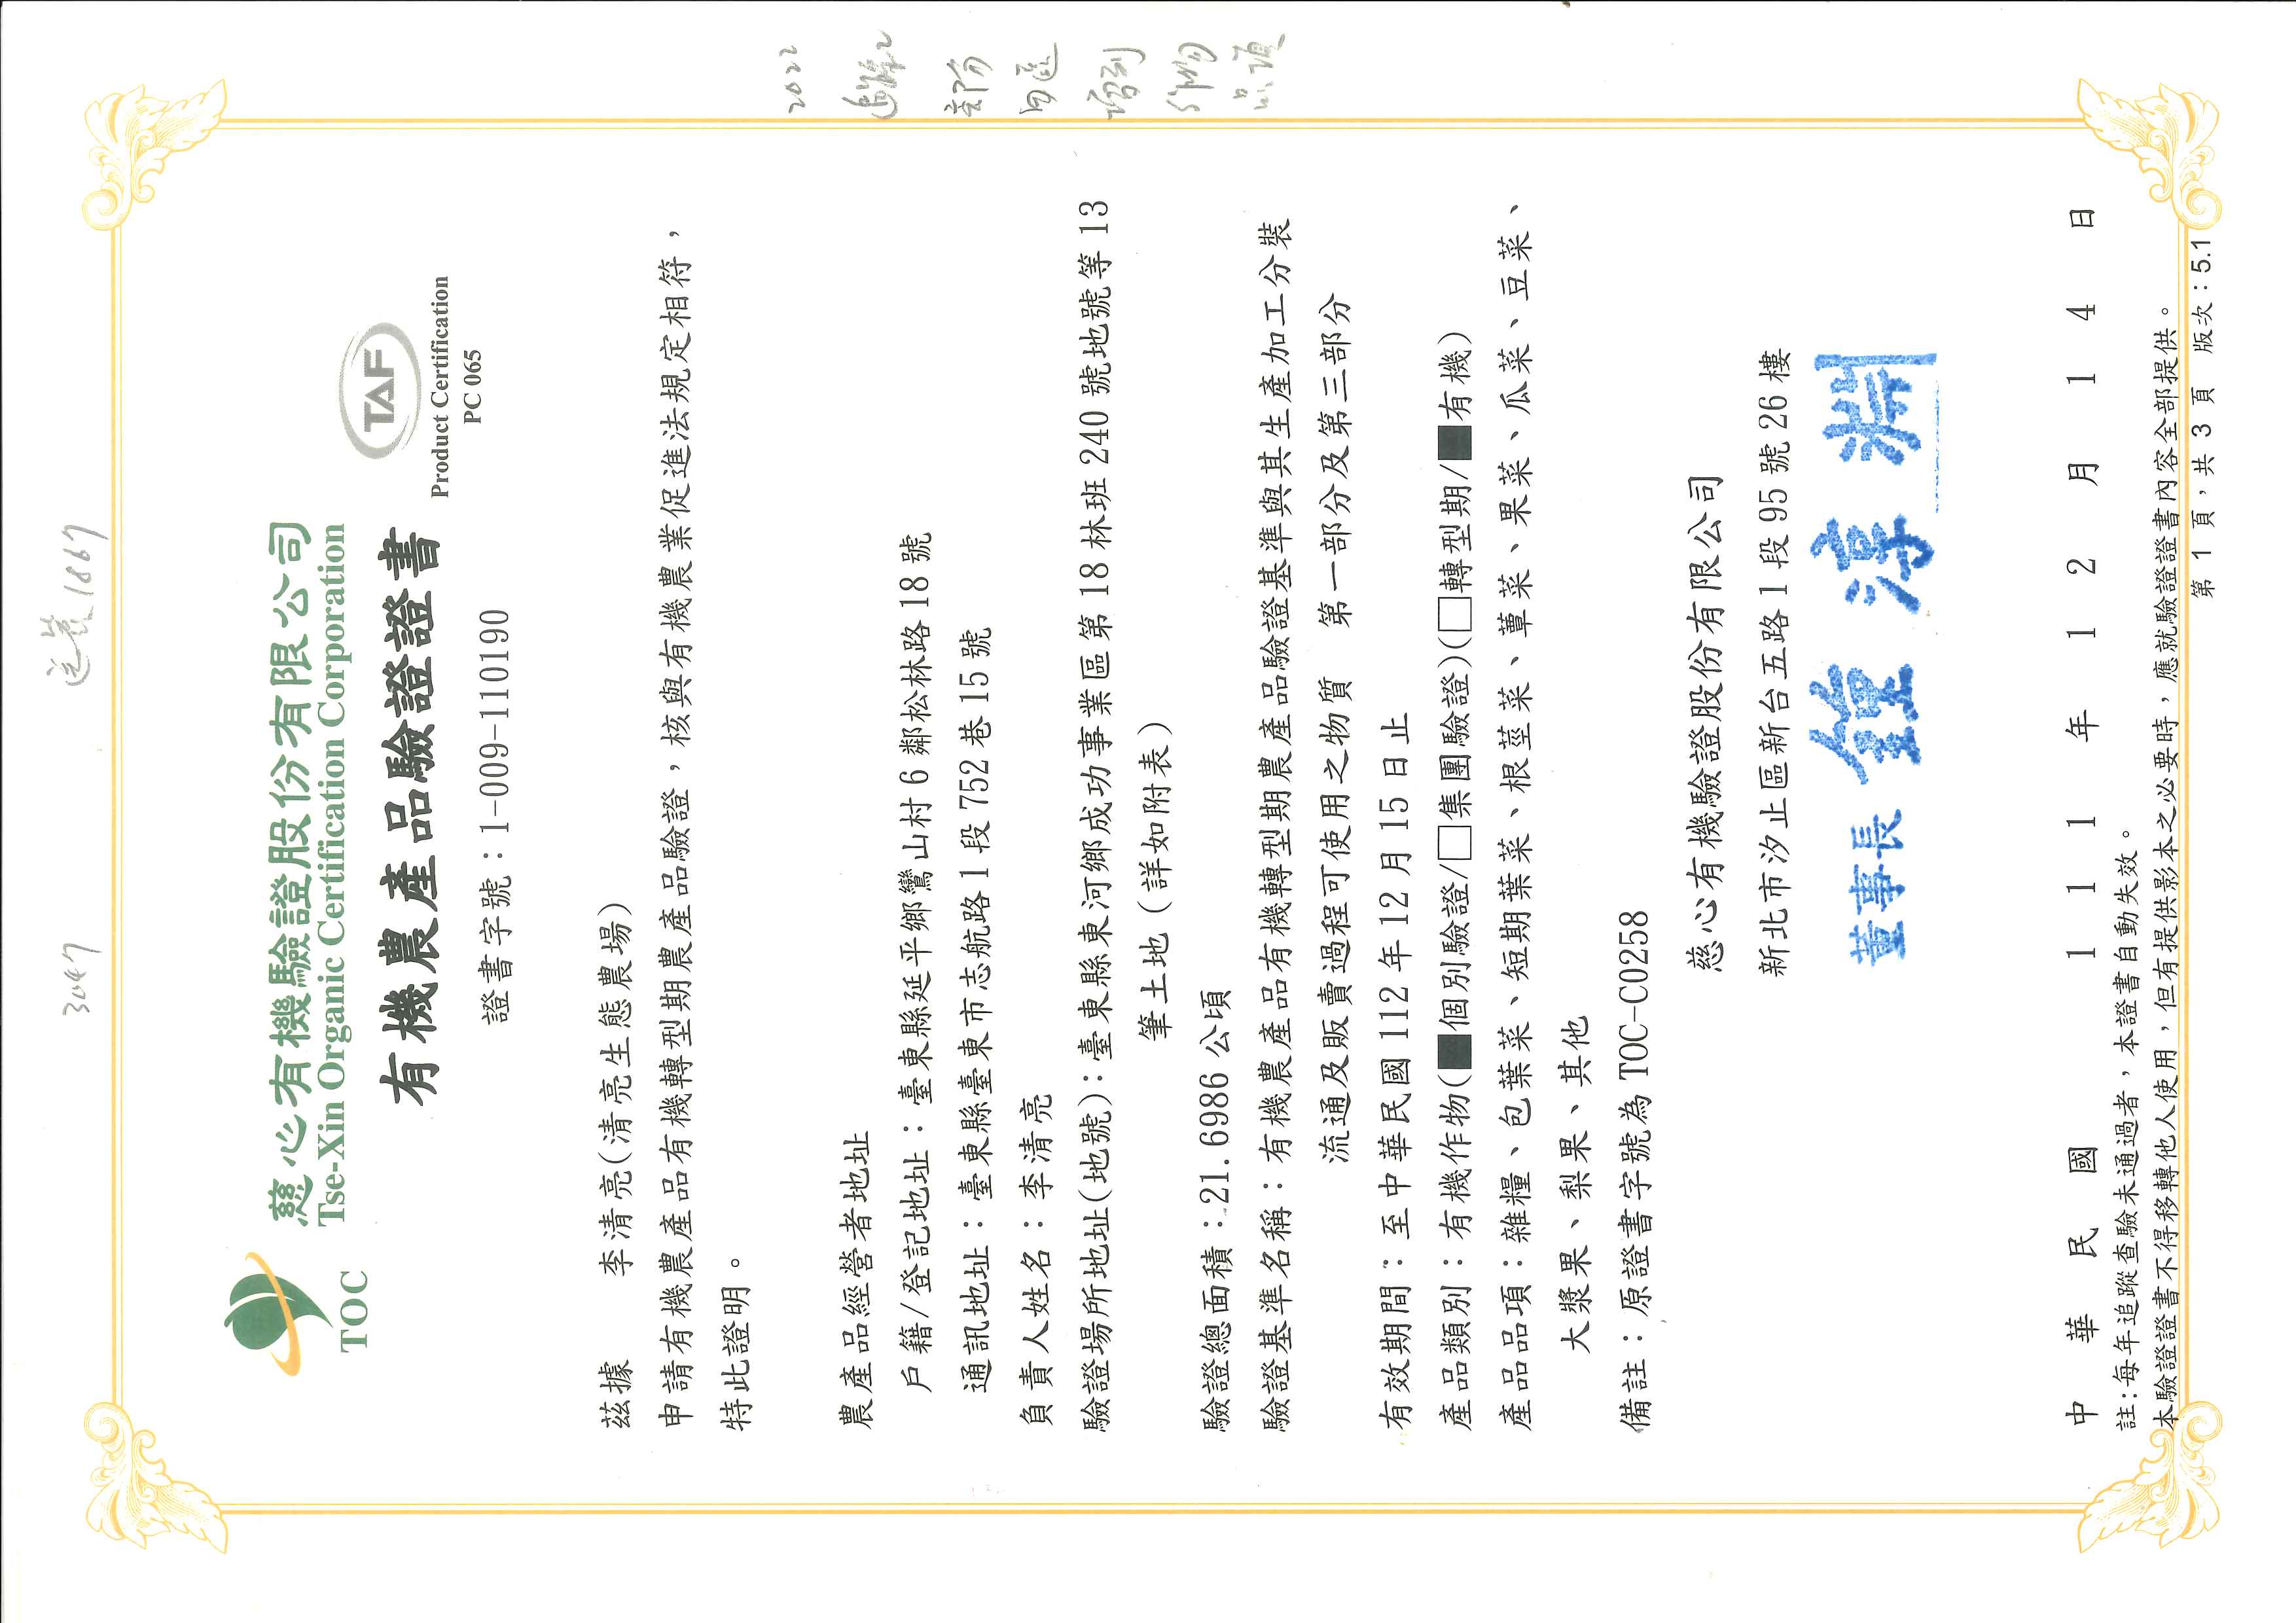 3047
1867
慈心有機驗證股份有限公司
Tse-Xin Organic Certification Corporation
TOC
有機農產品驗證證書
TAF
Product Certification
PC 065
證書字號：1-009-110190
茲據 李清亮(清亮生態農場)
申請有機農產品有機轉型期農產品驗證，核與有機農業促進法規定相符，
特此證明。
農產品經營者地址
戶籍/登記地址：臺東縣延平鄉鸞山村6鄰松林路18號
通訊地址：臺東縣臺東市志航路1段752巷15號
負責人姓名：李清亮
驗證場所地址(地號)：臺東縣東河鄉成功事業區第18林班240號地號等13
筆土地（詳如附表）
驗證總面積：21.6986公頃
驗證基準名稱：有機農產品有機轉型期農產品驗證基準與其生產加工分裝
流通及販賣過程可使用之物質 第一部分及第三部分
有效期間：至中華民國112年12月15日止
產品類別：有機作物(■個別驗證/□集團驗證)(□轉型期/■有機)
產品品項：雜糧、包葉菜、短期葉菜、根莖菜、蕈菜、果菜、瓜菜、豆菜、
大漿果、梨果、其他
備註：原證書字號為TOC-C0258
慈心有機驗證股份有限公司
新北市汐止區新台五路1段95號26樓
董事長
中華民國111年12月14日
註:每年追蹤查驗未通過者，本證書自動失效。
本驗證證書不得移轉他人使用，但有提供影本之必要時，應就驗證證書內容全部提供。
第 1 頁，共 3 頁 版次：5.1
2022
追蹤
部分
增列
作物
品項